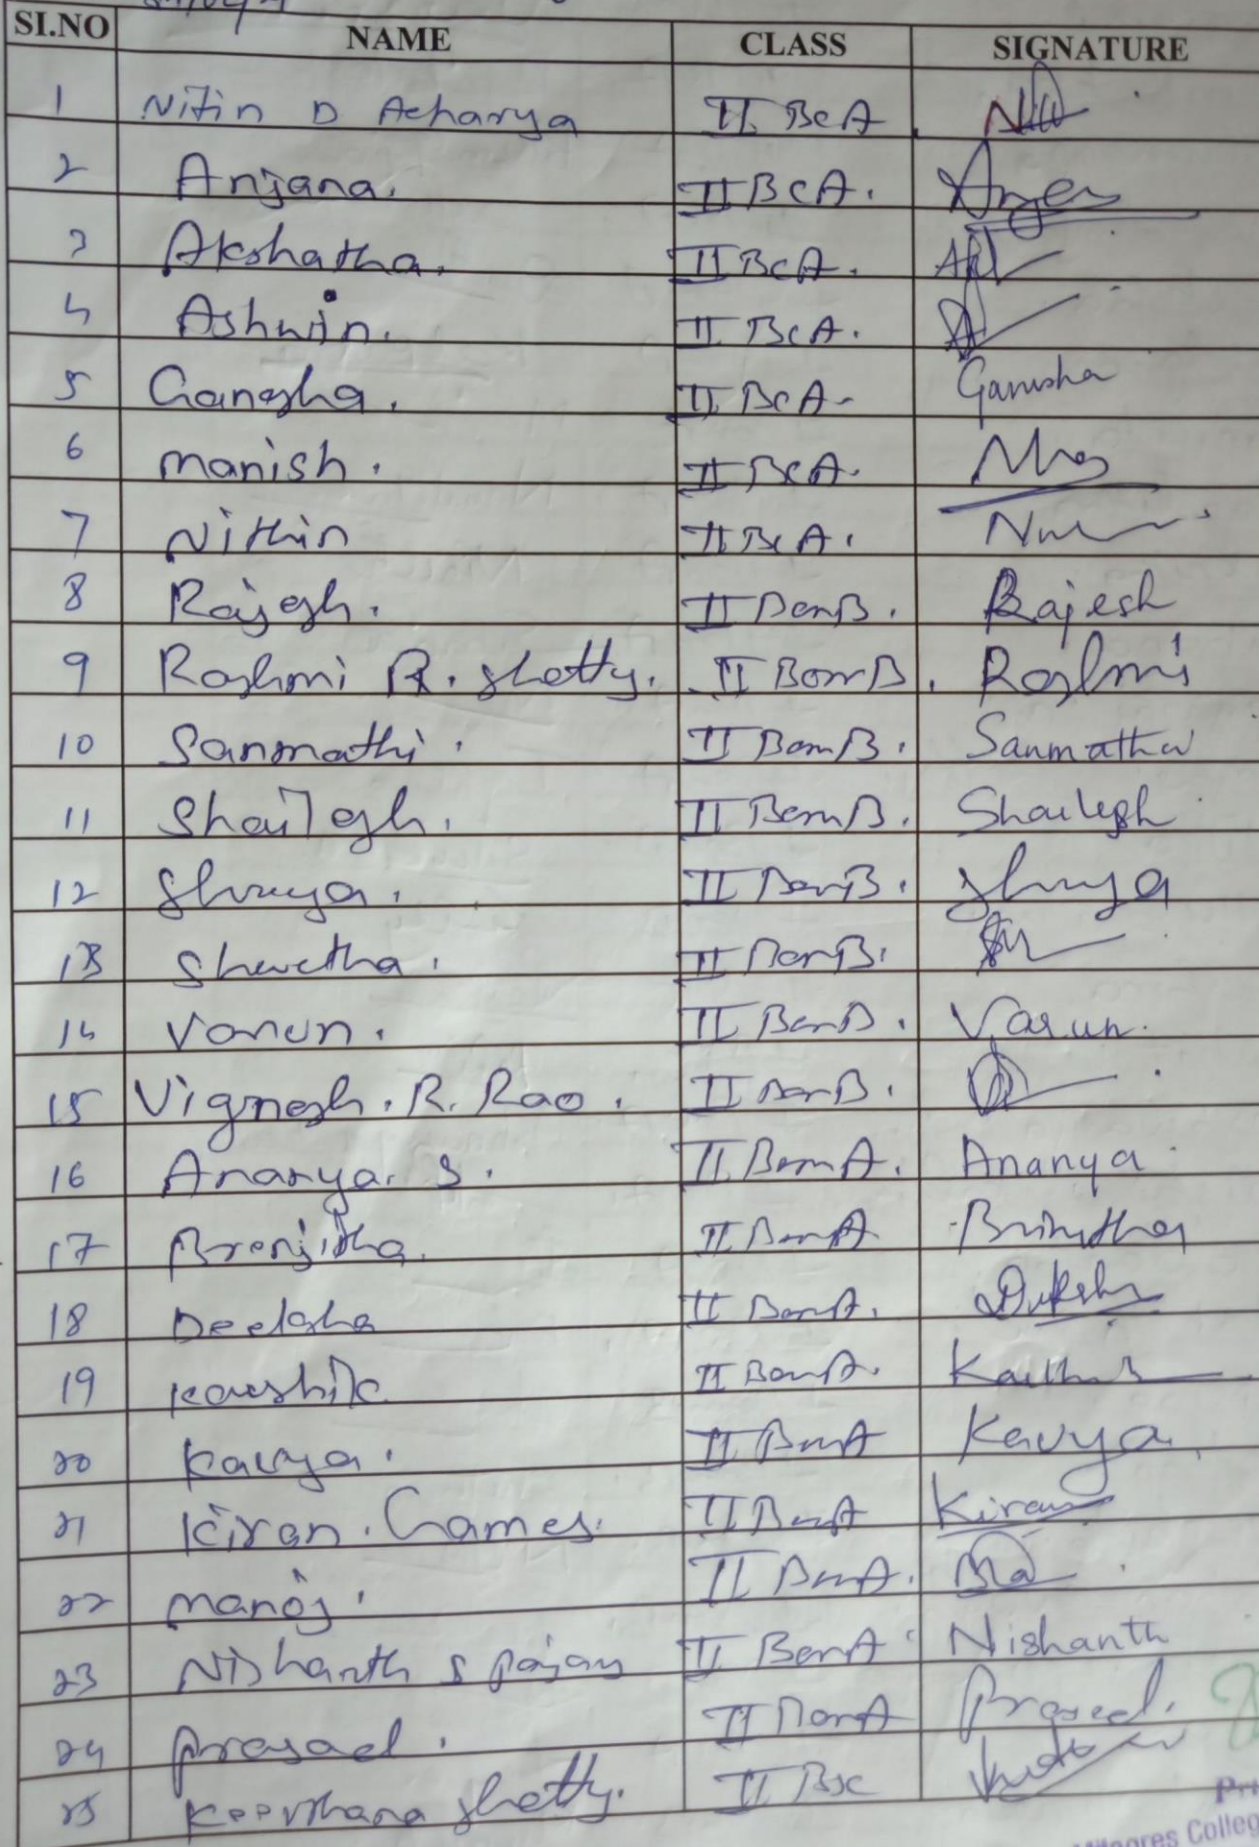 SI.NO NAME CLASS SIGNATURE
1 Nitin D Acharya II BCA
2 Anjana. II BCA.
3 Akshatha. II BCA.
4 Ashwin. II BCA.
5 Ganesha. II BCA- Ganesha
6 Manish. II BCA.
7 Nithin II BCA.
8 Rajesh. II Bom B. Rajesh
9 Rashmi R. Shetty. II Bom B. Rashmi
10 Sanmathi. II Bom B. Sanmathi
11 Shailesh. II Bom B. Shailesh
12 Shreya. II Bom B. Shreya
13 Shwetha. II Bom B.
14 Varun. II Bom B. Varun.
15 Vignesh. R. Rao. II Bom B.
16 Ananya. S. II Bom A. Ananya
17 II Bom A
18 Deeksha II Bom A. Deeksha
19 Koushik II Bom A.
20 Kavya. II Bom A Kavya
21 Kiran. Games. II Bom A Kiran
22 Manoj. II Bom A.
23 Nishanth S II Bom A Nishanth
24 Prasad. II Bom A Prasad.
25 Keerthana Shetty. II Bsc